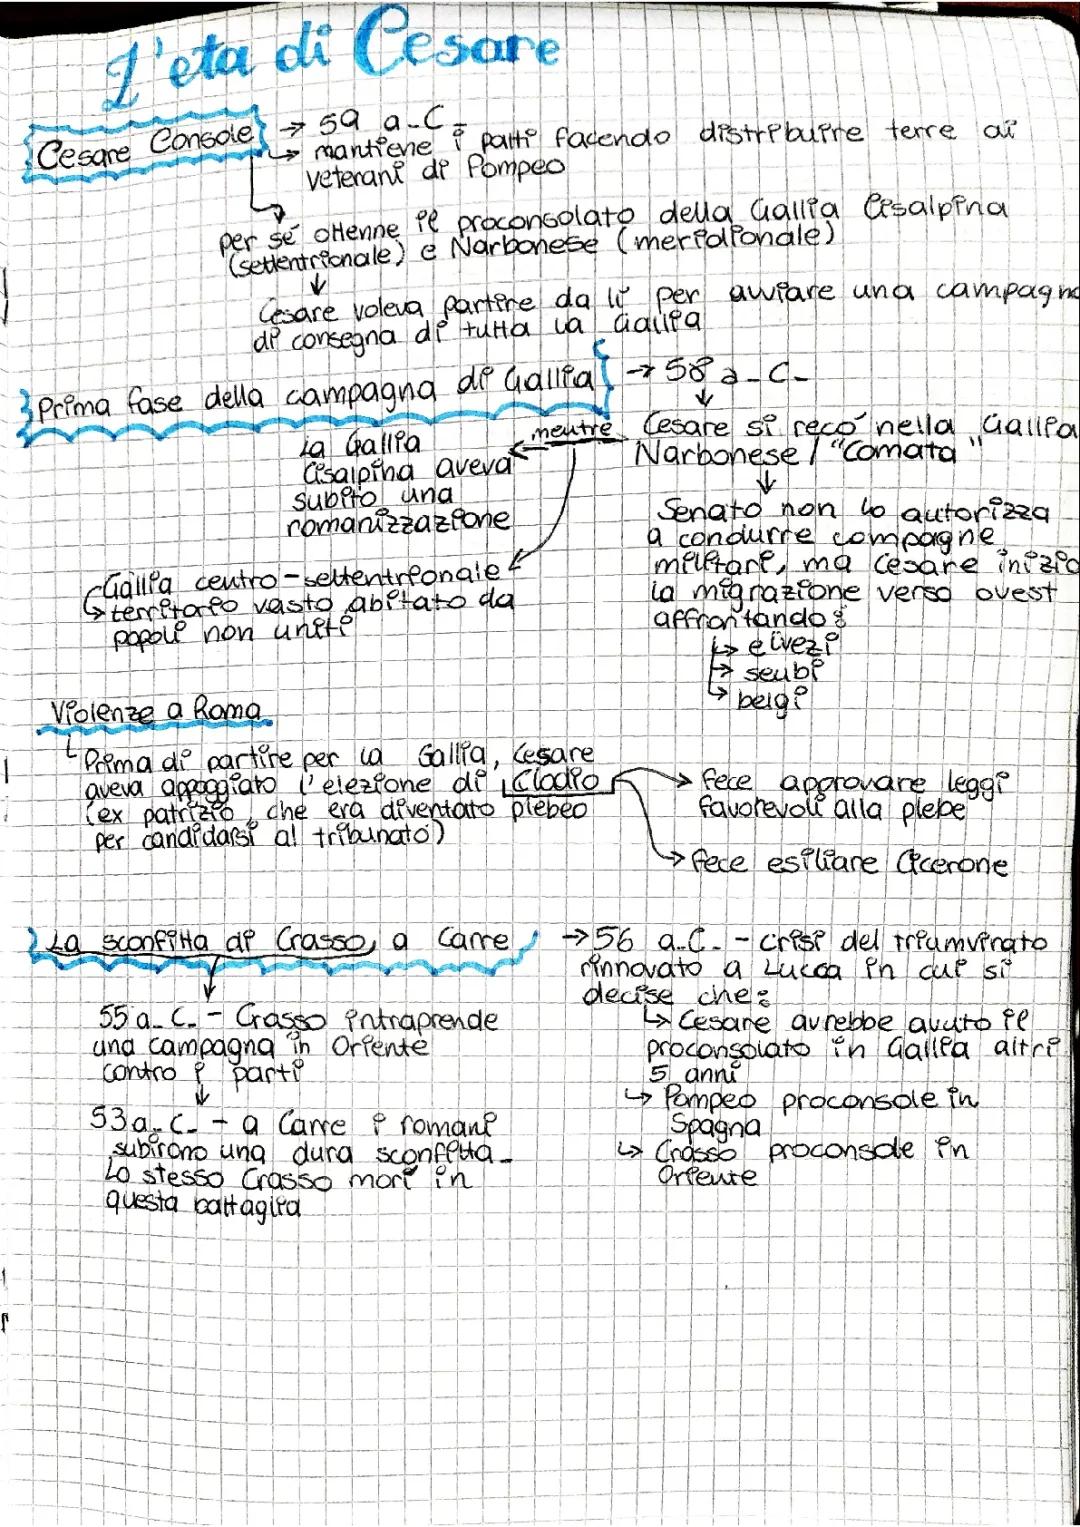 L'eta di Cesare
Cesare Console → 59 a.C.
→ mantiene i patti facendo distribuire terre ai
veterani di Pompeo
per sé ottenne il proconsolato della Gallia Cisalpina
(settentrionale) e Narbonese (meridionale)
Cesare voleva partire da lì per avviare una campagna
di consegna di tutta la Gallia
Prima fase della campagna di Gallia → 58 a.C.
mentre Cesare si recò nella Gallia
Narbonese / "Comata"
La Gallia
Cisalpina aveva
subito una
romanizzazione
Senato non lo autorizza
a condurre campagne
militari, ma Cesare iniziò
la migrazione verso ovest
affrontando:
→ elvezi
→ seubi
→ belgi
Gallia centro-settentrionale
→ territorio vasto abitato da
popoli non uniti
Violenze a Roma
Prima di partire per la Gallia, Cesare
aveva appoggiato l'elezione di Clodio
(ex patrizio, che era diventato plebeo
per candidarsi al tribunato)
→ fece approvare leggi
favorevoli alla plebe
→ fece esiliare Cicerone
La sconfitta di Crasso, a Carre
→ 56 a.C. - crisi del triumvirato
rinnovato a Lucca in cui si
decise che:
→ Cesare avrebbe avuto il
proconsolato in Gallia altri
5 anni
→ Pompeo proconsole in
Spagna
→ Crasso proconsole in
Oriente
55 a.C. - Crasso intraprende
una campagna in Oriente
contro i parti
53 a.C. - a Carre i romani
subirono una dura sconfitta.
Lo stesso Crasso morì in
questa battaglia